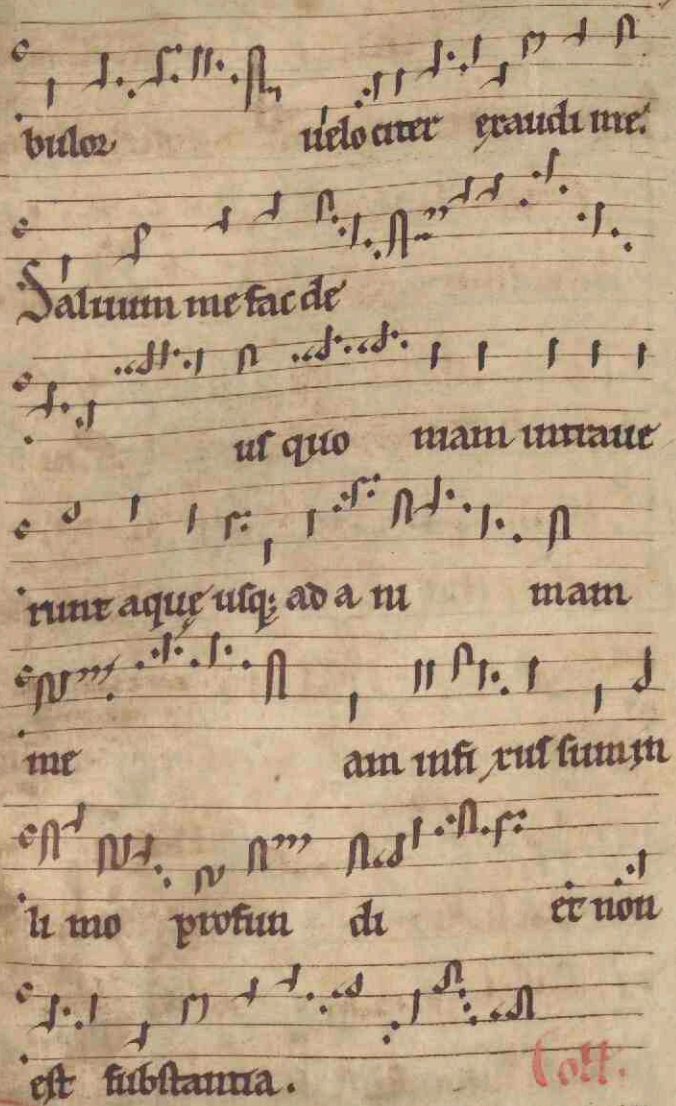 bulor uelociter exaudi me.
Saluum me fac de
us quo niam intraue
runt aquę usq; ad a ni mam
me am infi xus sum in
li mo profun di et non
est substantia. Coll.